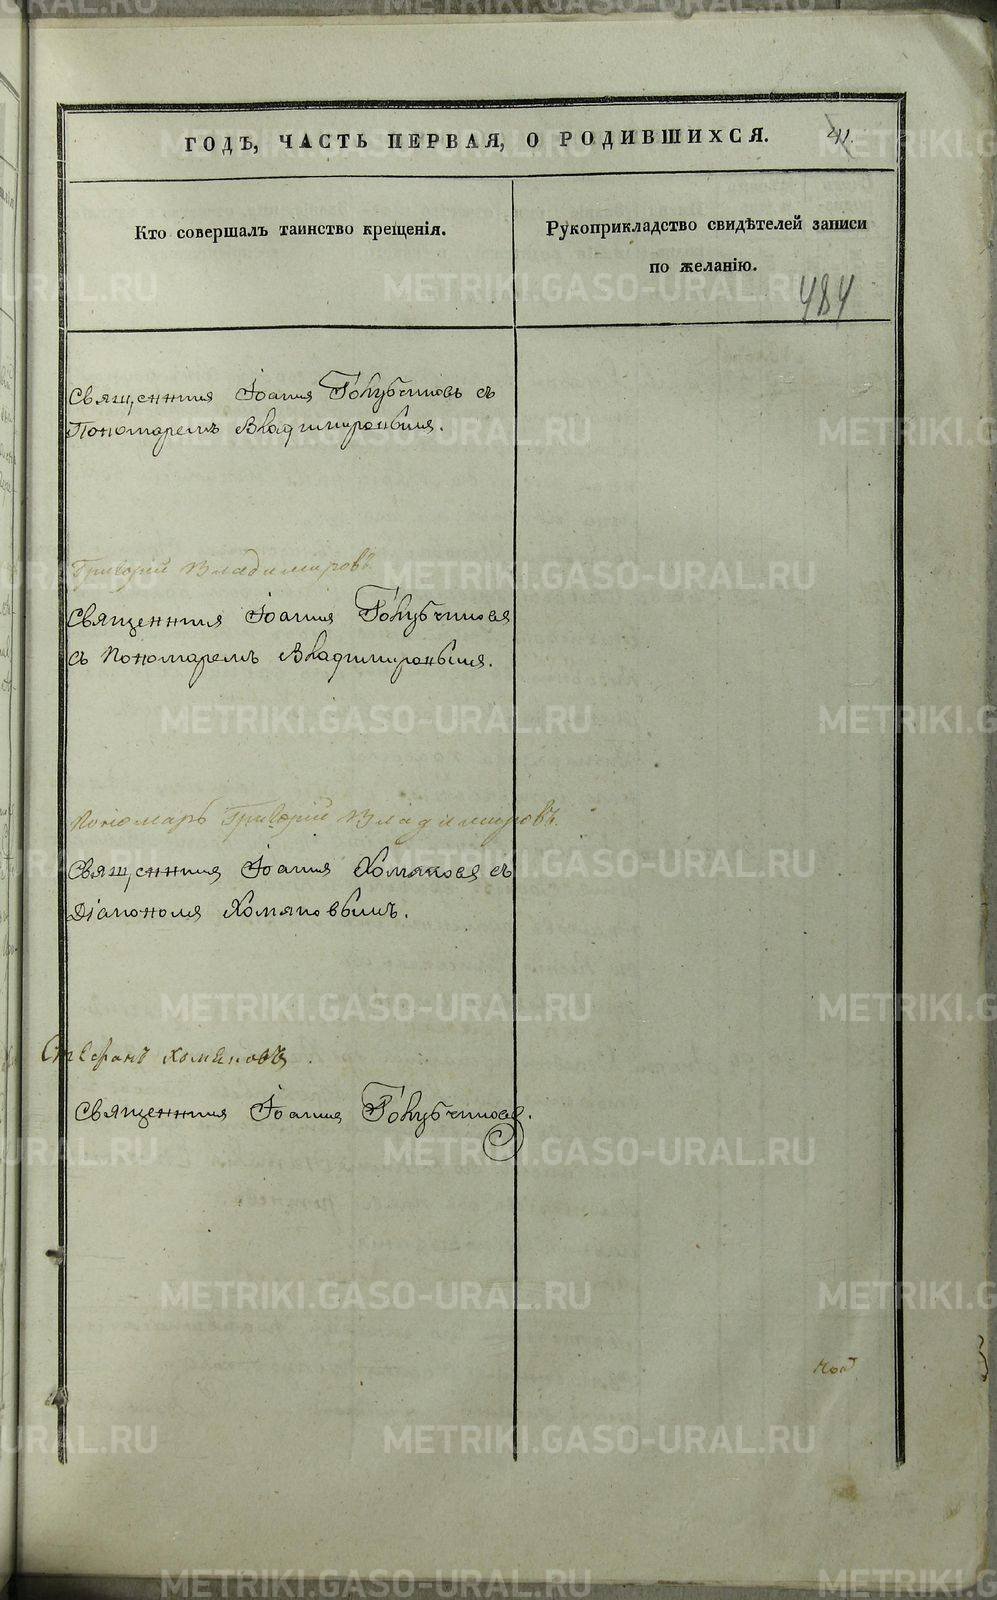 ГОДЪ, ЧАСТЬ ПЕРВАЯ, О РОДИВШИХСЯ.
41.
Кто совершалъ таинство крещенія.
Рукоприкладство свидѣтелей записи
по желанію.
484
Священникъ Іоаннъ Голубчиковъ съ
Пономаремъ Владимировымъ.
Григорій Владимировъ
Священникъ Іоаннъ Голубчиковъ
съ Пономаремъ Владимировымъ.
Пономарь Григорій Владимировъ.
Священникъ Іоаннъ Хомяковъ съ
Діакономъ Хомяковымъ.
Стефанъ Хомяковъ.
Священникъ Іоаннъ Голубчиковъ.
METRIKI.GASO-URAL.RU